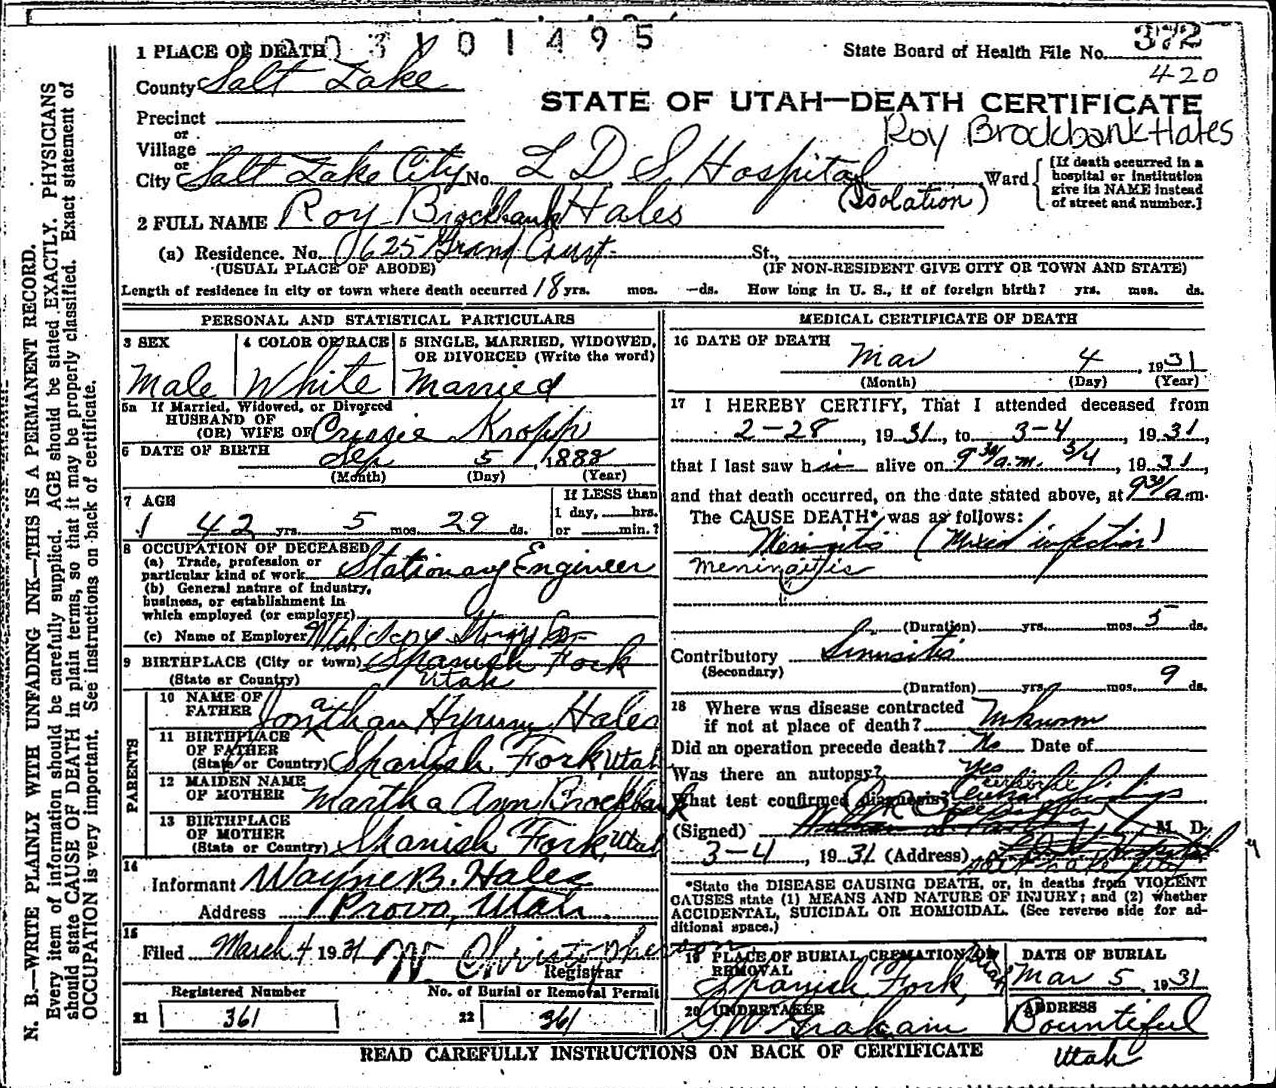 3 1 0 1 4 9 5
1 PLACE OF DEATH
State Board of Health File No. 372
420
County Salt Lake
STATE OF UTAH—DEATH CERTIFICATE
Precinct
Roy Brockbank Hales
or
Village
or
City Salt Lake City No. L D S Hospital Ward
(Isolation)
[If death occurred in a
hospital or institution
give its NAME instead
of street and number.]
2 FULL NAME Roy Brockbank Hales
(a) Residence. No. 625 Grand Court St.,
(USUAL PLACE OF ABODE) (IF NON-RESIDENT GIVE CITY OR TOWN AND STATE)
Length of residence in city or town where death occurred 18 yrs. mos. —ds. How long in U. S., if of foreign birth? yrs. mos. ds.
PERSONAL AND STATISTICAL PARTICULARS
3 SEX 4 COLOR OR RACE 5 SINGLE, MARRIED, WIDOWED,
OR DIVORCED (Write the word)
Male White Married
5a If Married, Widowed, or Divorced
HUSBAND OF
(OR) WIFE OF Crissie Kropp
6 DATE OF BIRTH Sep 5, 1888
(Month) (Day) (Year)
7 AGE If LESS than
1 day, hrs.
42 yrs. 5 mos. 29 ds. or min.?
8 OCCUPATION OF DECEASED
(a) Trade, profession or
particular kind of work Stationary Engineer
(b) General nature of industry,
business, or establishment in
which employed (or employer)
(c) Name of Employer
9 BIRTHPLACE (City or town) Spanish Fork
(State or Country) Utah
PARENTS
10 NAME OF
FATHER Jonathan Hyrum Hales
11 BIRTHPLACE
OF FATHER
(State or Country) Spanish Fork, Utah
12 MAIDEN NAME
OF MOTHER Martha Ann Brockbank
13 BIRTHPLACE
OF MOTHER
(State or Country) Spanish Fork, Utah
14
Informant Wayne B. Hales
Address Provo, Utah.
15
Filed March 4 1931 W Christopherson
Registrar
Registered Number No. of Burial or Removal Permit
21 361 22 361
MEDICAL CERTIFICATE OF DEATH
16 DATE OF DEATH
Mar 4, 1931
(Month) (Day) (Year)
17 I HEREBY CERTIFY, That I attended deceased from
2-28, 1931, to 3-4, 1931,
that I last saw him alive on 9 30/a.m. 3/4, 1931,
and that death occurred, on the date stated above, at 9 30/a.m.
The CAUSE DEATH* was as follows:
Meningitis (Mixed infection)
meningitis
(Duration) yrs. mos. 5 ds.
Contributory Sinusitis
(Secondary)
(Duration) yrs. mos. 9 ds.
18 Where was disease contracted
if not at place of death? Unknown
Did an operation precede death? No Date of
Was there an autopsy? yes
What test confirmed diagnosis?
(Signed) M. D.
3-4, 1931 (Address)
*State the DISEASE CAUSING DEATH, or, in deaths from VIOLENT
CAUSES state (1) MEANS AND NATURE OF INJURY; and (2) whether
ACCIDENTAL, SUICIDAL OR HOMICIDAL. (See reverse side for ad-
ditional space.)
19 PLACE OF BURIAL, CREMATION, OR
REMOVAL
Spanish Fork, Utah
DATE OF BURIAL
Mar 5, 1931
20 UNDERTAKER
G W Graham
ADDRESS
Bountiful
Utah
READ CAREFULLY INSTRUCTIONS ON BACK OF CERTIFICATE
N. B.—WRITE PLAINLY WITH UNFADING INK—THIS IS A PERMANENT RECORD.
Every item of information should be carefully supplied. AGE should be stated EXACTLY. PHYSICIANS
should state CAUSE OF DEATH in plain terms, so that it may be properly classified. Exact statement of
OCCUPATION is very important. See instructions on back of certificate.